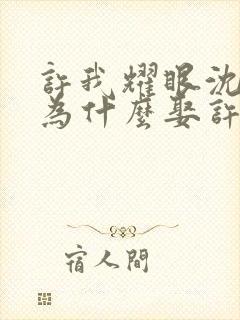 許我耀眼沈
為什麼娶許
宿人間